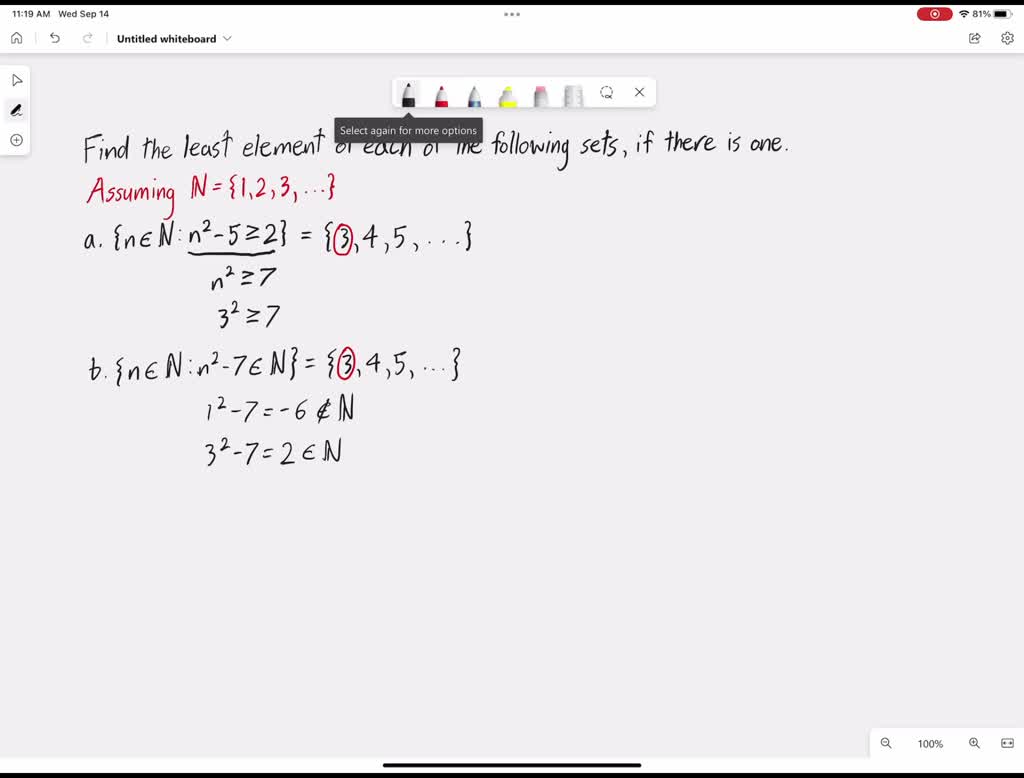 11:19 AM Wed Sep 14
81%
Untitled whiteboard
Select again for more options
Find the least element of each of the following sets, if there is one.
Assuming ℕ = {1,2,3,...}
a. {n∈ℕ: n²-5≥2} = {3,4,5,...}
n²≥7
3²≥7
b. {n∈ℕ: n²-7∈ℕ} = {3,4,5,...}
1²-7=-6∉ℕ
3²-7=2∈ℕ
100%